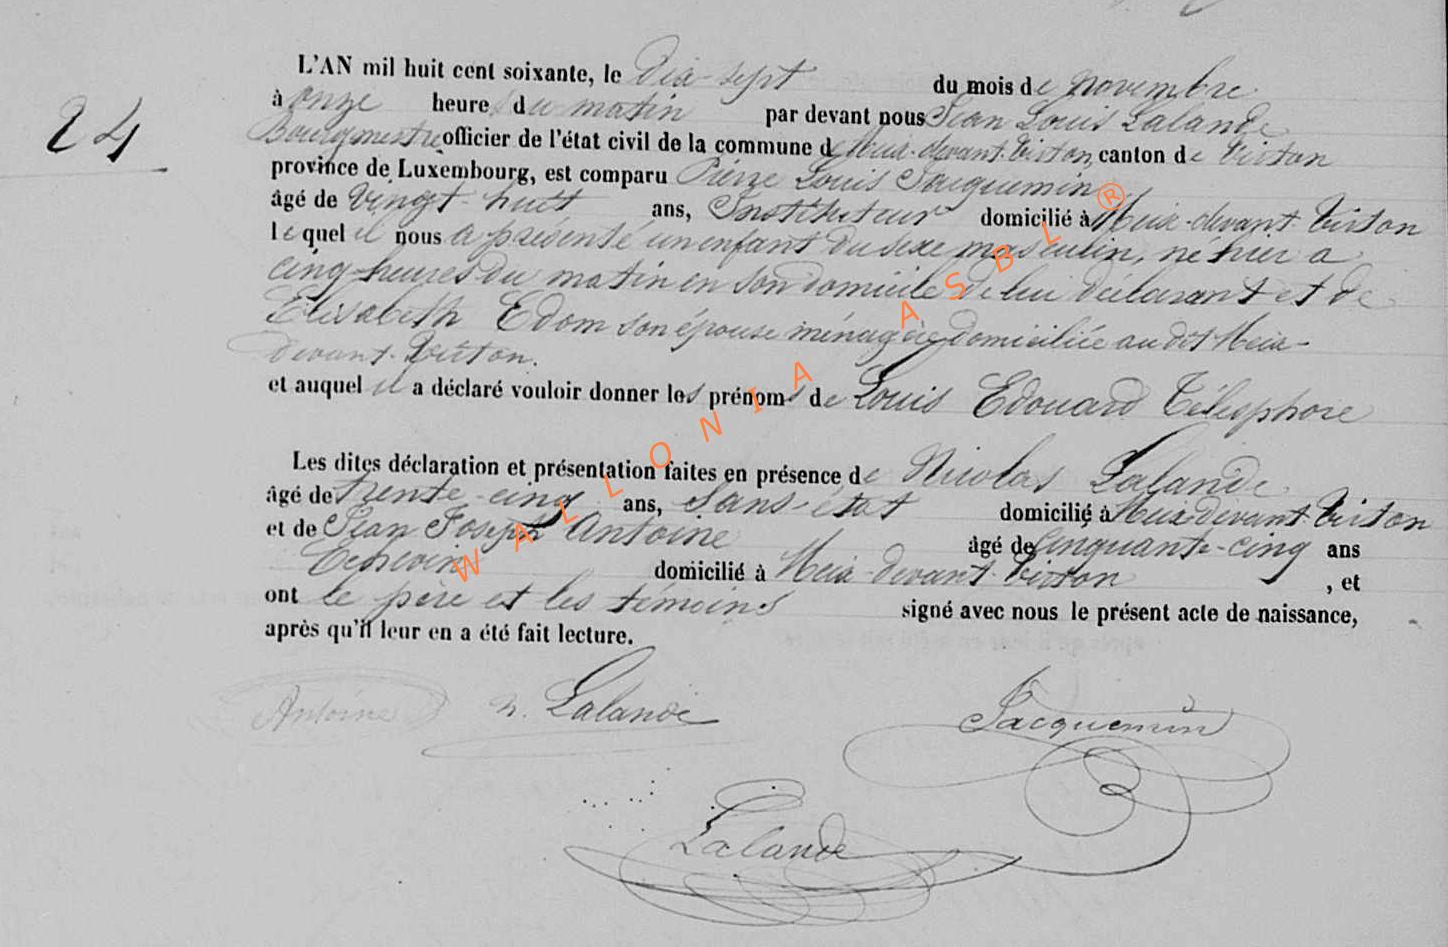 24
L'AN mil huit cent soixante, le dix-sept du mois de novembre
à onze heure du matin par devant nous Jean Louis Lalande
Bourgmestre officier de l'état civil de la commune de Meix-devant-Virton, canton de Virton
province de Luxembourg, est comparu Pierre Louis Jacquemin
âgé de vingt-huit ans, Instituteur domicilié à Meix-devant-Virton
lequel il nous a présenté un enfant du sexe masculin, né hier a
cinq heures du matin en son domicile de lui déclarant et de
Elisabeth Edom son épouse ménagère domiciliée au dit Meix-
devant-Virton.
et auquel il a déclaré vouloir donner les prénoms de Louis Edouard Télesphore
Les dites déclaration et présentation faites en présence de Nicolas Lalande
âgé de trente-cinq ans, Sans-état domicilié à Meix-devant-Virton
et de Jean Joseph Antoine âgé de cinquante-cinq ans
Echevin domicilié à Meix-devant-Virton , et
ont le père et les témoins signé avec nous le présent acte de naissance,
après qu'il leur en a été fait lecture.
Antoine n. Lalande Jacquemin
Lalande
WALLONIA ASBL ®